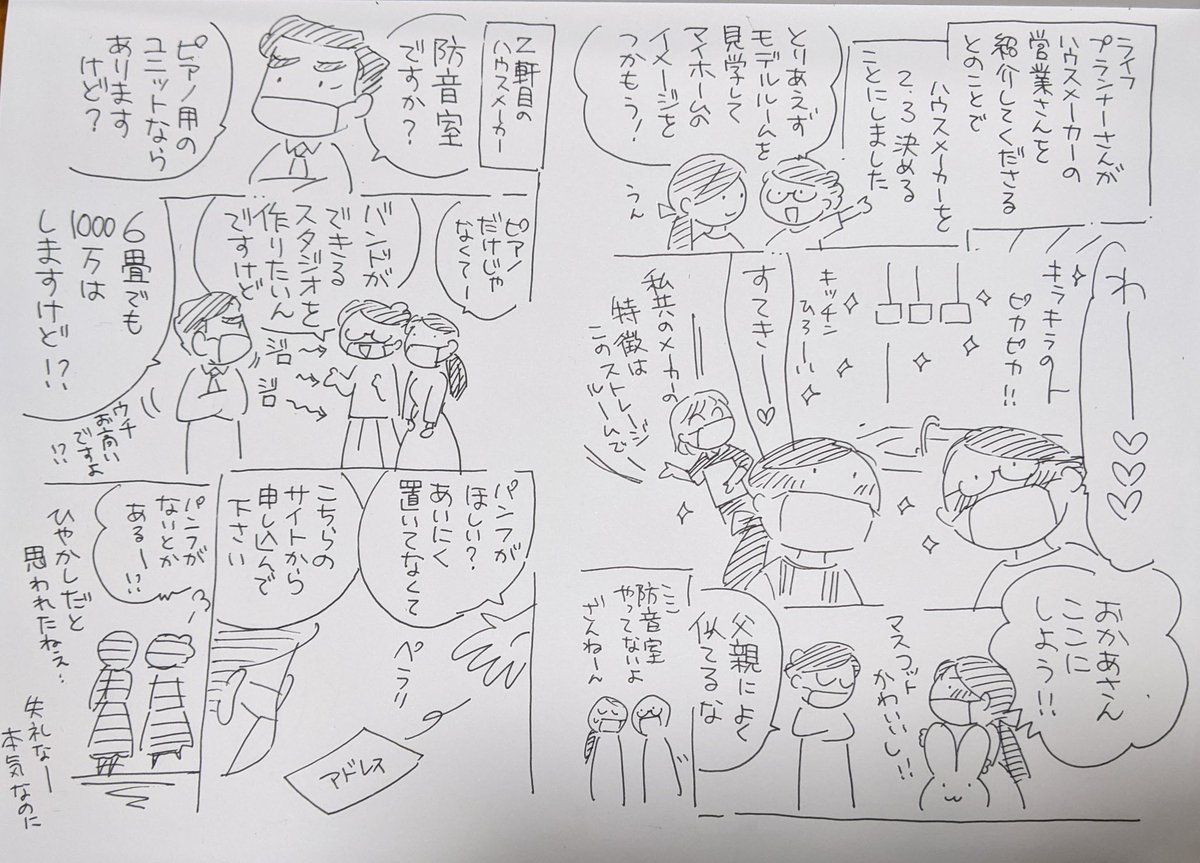 ライフ
プランナーさんが
ハウスメーカーの
営業さんを
紹介してくださる
とのことで
ハウスメーカーを
2.3決める
ことにしました
とりあえず
モデルルームを
見学して
マイホームの
イメージを
つかもう！
うん
わーー♡♡♡
キラキラの
ピカピカ!!
キッチン
ひろーい
すてきー♡
私共のメーカーの
特徴は
このストレージ
ルームで
おかあさん
ここに
しよう!!
マスコット
かわいいし!!
父親によく
似てるな
ここ
防音室
やってないよ
ざんねーん
2軒目の
ハウスメーカー
防音室
ですか？
ピアノ用の
ユニットなら
あります
けど？
ピアノ
だけじゃ
なくてー
バンドが
できる
スタジオを
作りたいん
ですけど
ジロ
ジロ
6畳でも
1000万は
しますけど!?
ウチ
お高い
ですよ
!?
パンフが
ほしい？
あいにく
置いてなくて
こちらの
サイトから
申し込んで
下さい
ペラリ
アドレス
パンフが
ないとか
あるー!?
ひやかしだと
思われたねぇ
失礼なー
本気なのに